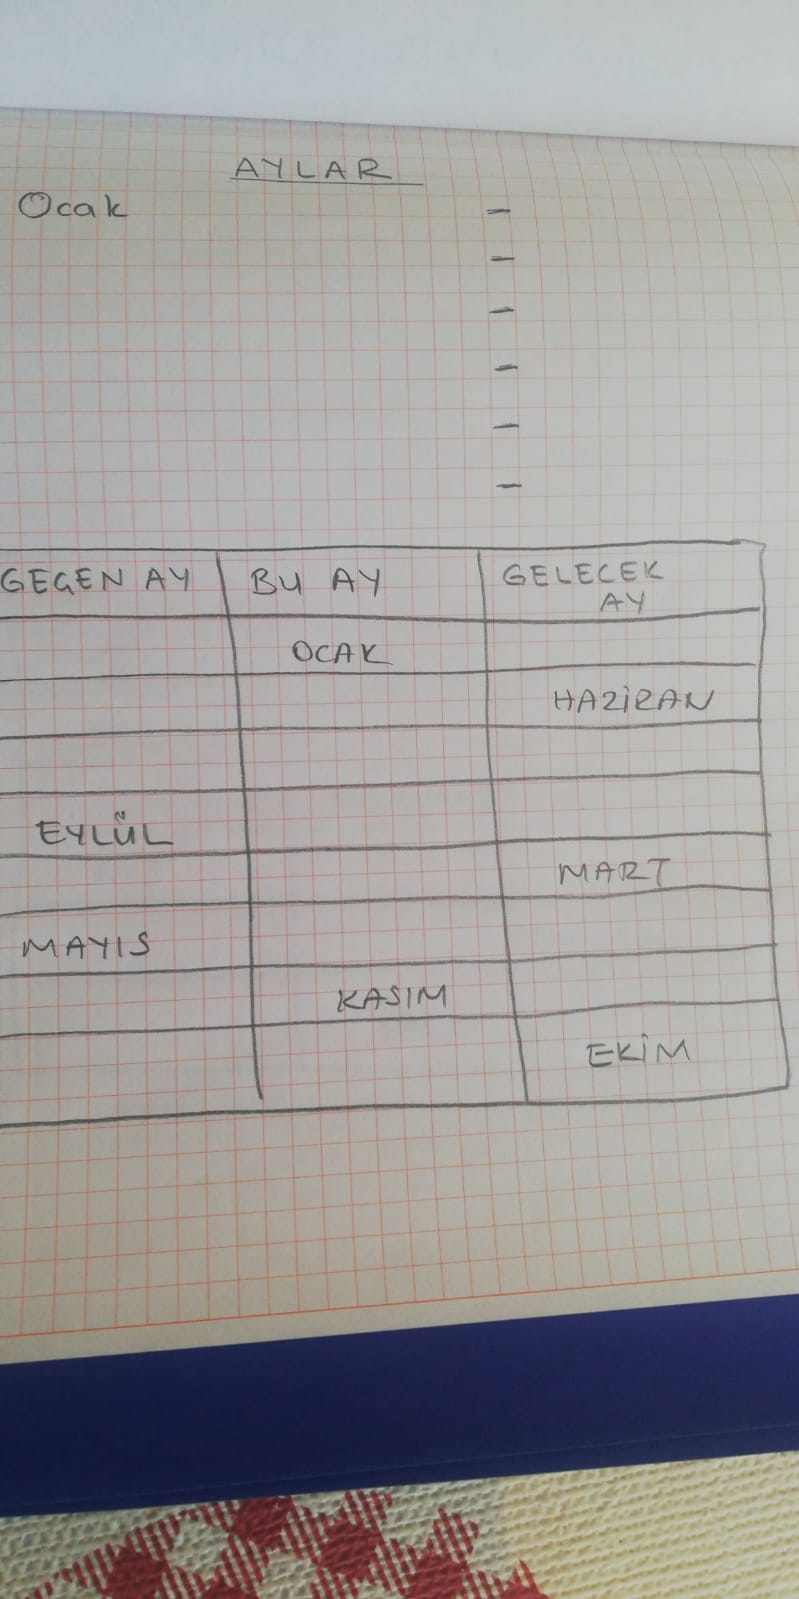 AYLAR
Ocak –
–
–
–
–
–
GEÇEN AY BU AY GELECEK AY
OCAK
HAZİRAN
EYLÜL
MART
MAYIS
KASIM
EKİM